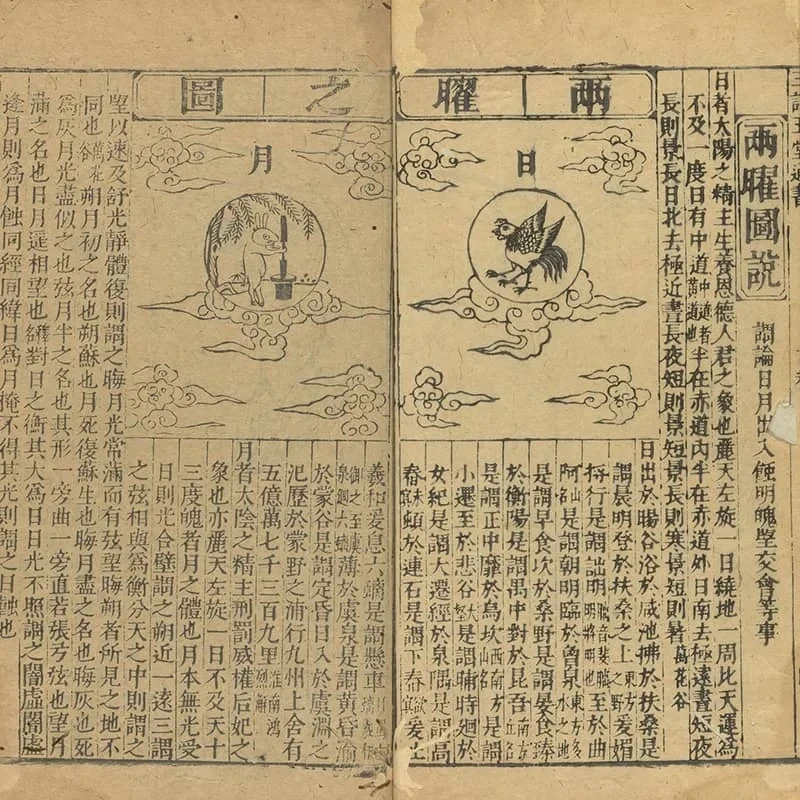 兩曜圖說
謂論日月出入蝕明魄望交會等事
日者太陽之精主生養恩德人君之象也麗天左旋一日繞地一周比天運為
不及一度日有中道中道者黃道也半在赤道內半在赤道外日南去極遠晝短夜
長則景長日北去極近晝長夜短則景短景長則寒景短則暑萬花谷
兩曜之圖
日
月
日出於暘谷浴於咸池拂於扶桑是
謂晨明登於扶桑之上東方之野爰
將行是謂朏明朏音斐朏明將明也至於曲
阿山名是謂朝明臨於曾泉東方多水之地
是謂早食次於桑野是謂晏食臻
於衡陽是謂禺中對於昆吾南方丘名
是謂正中靡於鳥次西南方山名是謂
小遷至於悲谷是謂晡時廻於
女紀是謂大遷經於泉隅是謂高
舂頓於連石是謂下舂爰止
羲和爰息六螭是謂懸車
薄於虞泉是謂黃昏淪
於蒙谷是謂定昏日入於虞淵之
汜歷於蒙野之浦行九州上舍有
五億萬七千三百九里淮南鴻烈解
月者太陰之精主刑罰威權后妃之
象也亦麗天左旋一日不及天十
三度魄者月之體也月本無光受
日則光合璧謂之朔近一遠三謂
之弦相與為衡分天之中則謂之
望以速及舒光靜體復則謂之晦月光常滿而有弦望晦朔者所見之地不
同也萬花谷朔月初之名也朔蘇也月死復蘇生也晦月盡之名也晦灰也死
為灰月光盡似之也弦月半之名也其形一旁曲一旁直若張弓弦也望月
滿之名也日月遥相望也對日之衝其大為日日光不照謂之闇虛闇虛
逢月則為月蝕同經同緯日為月掩不得其光則謂之日蝕也